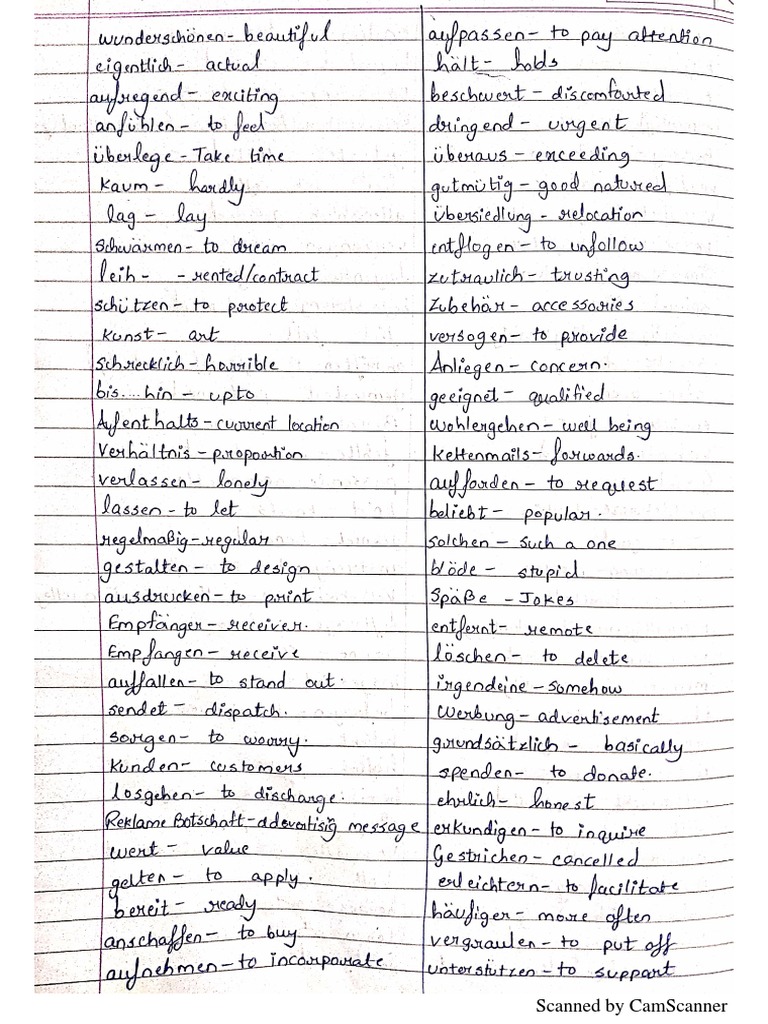 wunderschönen - beautiful
eigentlich - actual
aufregend - exciting
anfühlen - to feel
überlege - Take time
kaum - hardly
lag - lay
schwärmen - to dream
leih - - rented/contract
schützen - to protect
kunst - art
schrecklich - horrible
bis...hin - upto
Aufenthalts - current location
Verhältnis - proportion
verlassen - lonely
lassen - to let
regelmaßig - regular
gestalten - to design
ausdrucken - to print
Empfänger - receiver.
Empfangen - receive
auffallen - to stand out.
sendet - dispatch.
sorgen - to worry.
Kunden - customers
losgehen - to discharge.
Reklame Botschaft - addvertisig message
wert - value
gelten - to apply.
bereit - ready
anschaffen - to buy
aufnehmen - to incorporate
aufpassen - to pay attention
hält - holds
beschwert - discomforted
dringend - urgent
überaus - exceeding
gutmütig - good natured
übersiedlung - relocation
entflogen - to unfollow
zutraulich - trusting
Zubehär - accessories
versogen - to provide
Anliegen - concern.
geeignet - qualified
wohlergehen - well being
Kettenmails - forwards.
aufforden - to request
beliebt - popular.
solchen - such a one
blöde - stupid
Späße - Jokes
entfernt - remote
löschen - to delete
irgendeine - somehow
Werbung - advertisement
grundsätzlich - basically
spenden - to donate.
ehrlich - honest
erkundigen - to inquire
Gestrichen - cancelled
erleichtern - to facilitate
häufiger - more often
vergraulen - to put off
unterstutzen - to support
Scanned by CamScanner